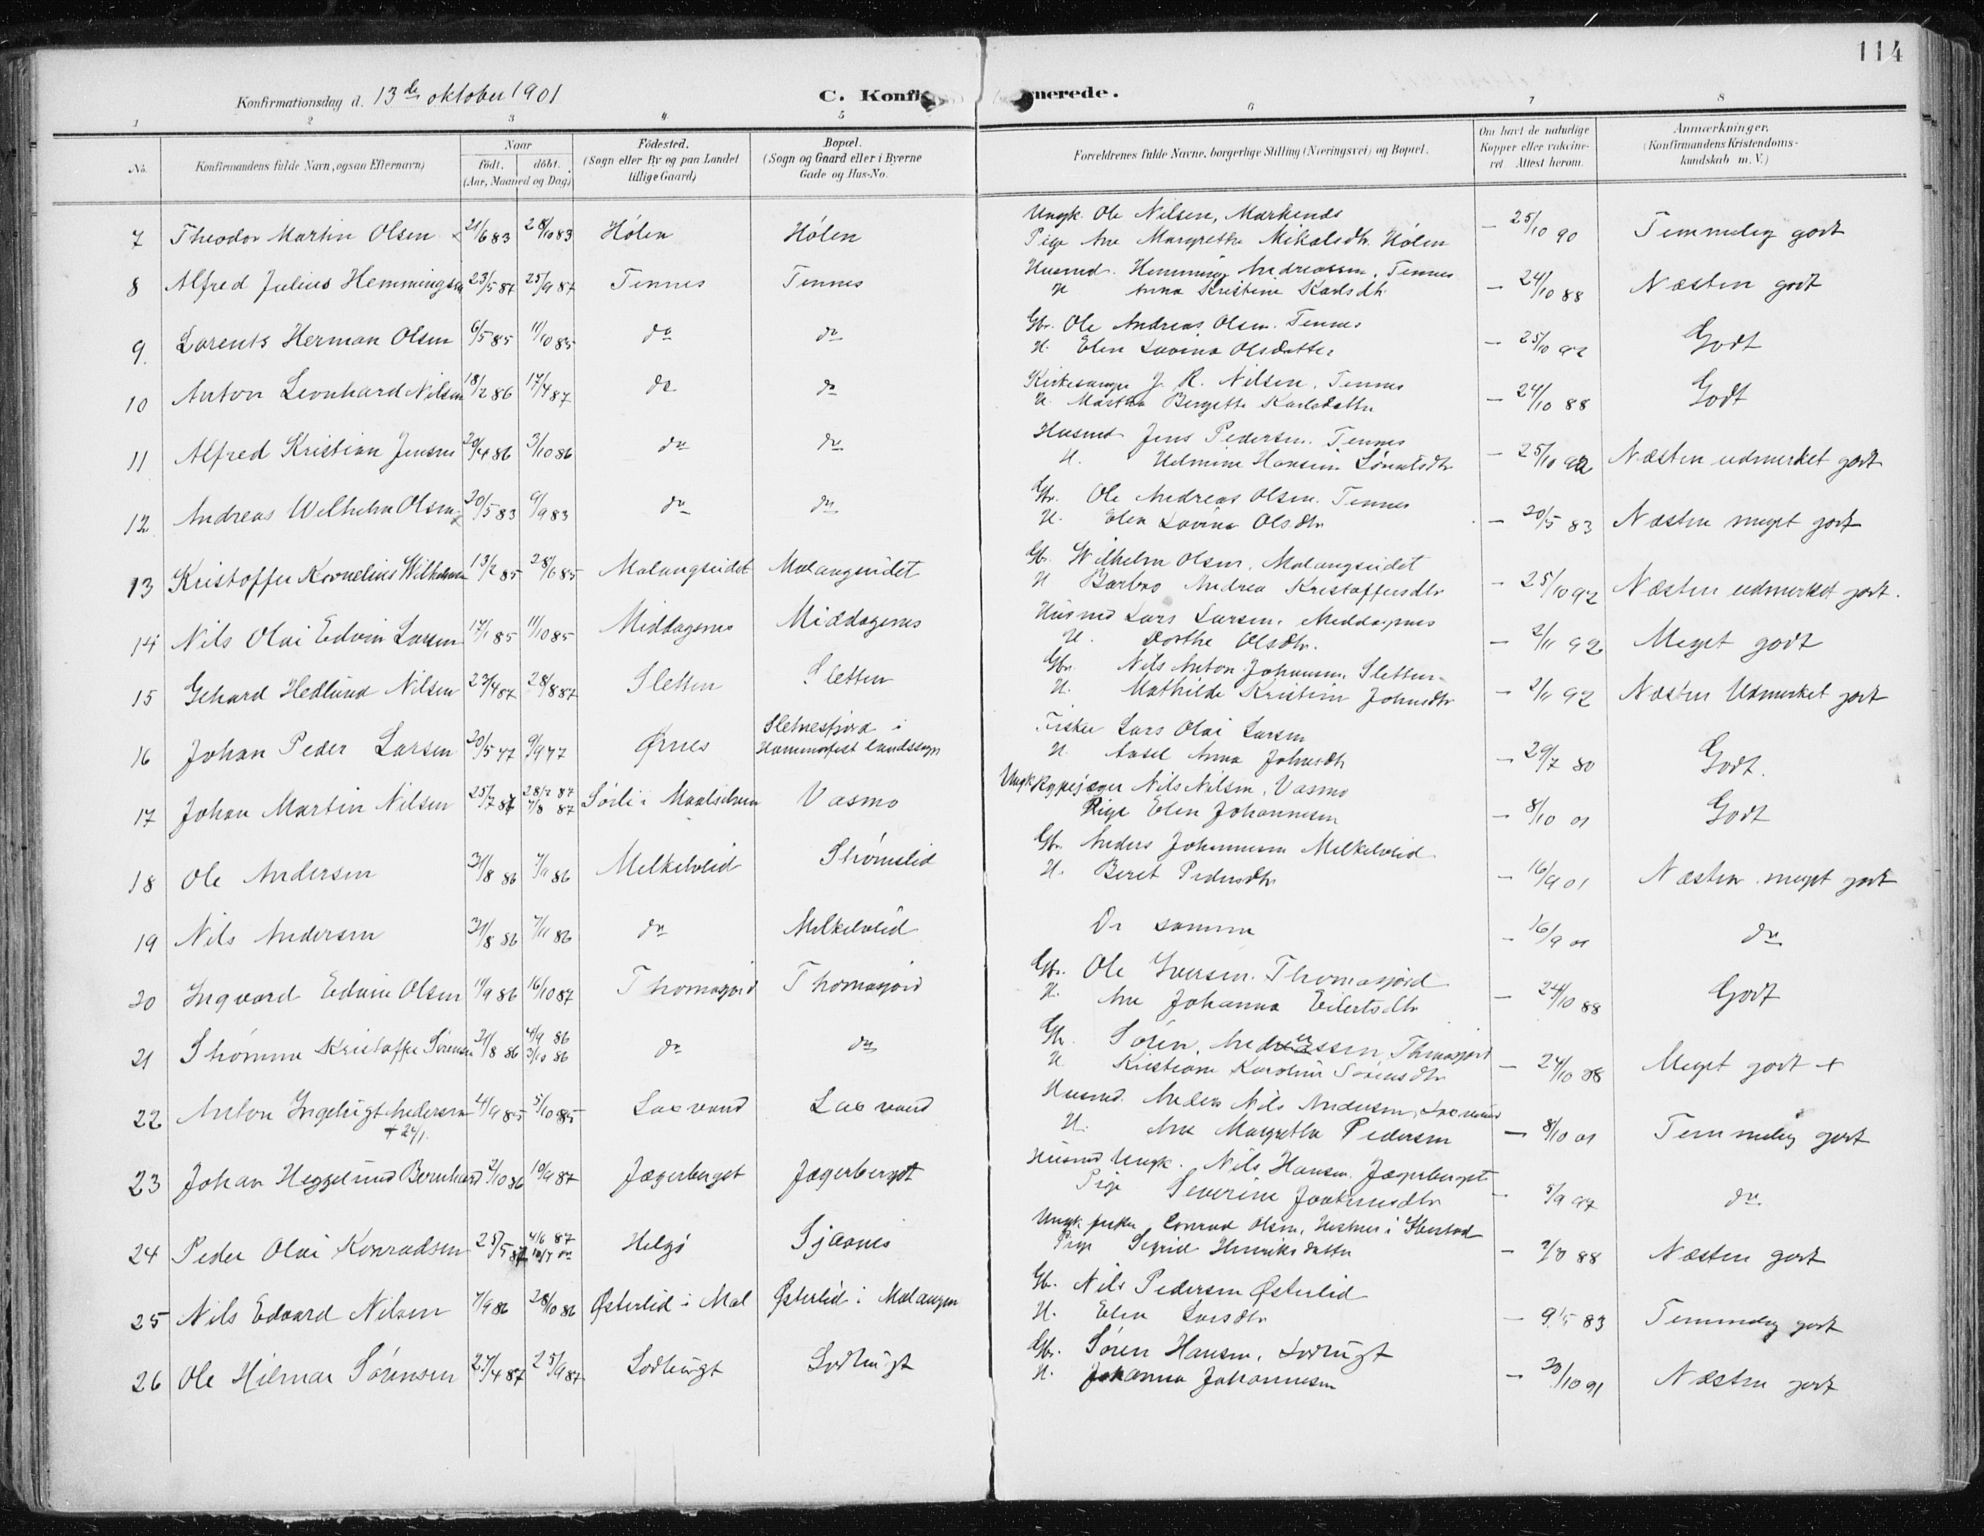 114
Konfirmationsdag d. 13de oktober 1901
C. Konfi nerede.
1 2 3 4 5 6 7 8
No. Konfirmandens fulde Navn, ogsaa Efternavn) Naar født. døbt. (Aar, Maaned og Dag) Fødested. (Sogn eller By og paa Landet tillige Gaard) Bopæl. (Sogn og Gaard eller i Byerne Gade og Hus-No. Forældrenes fulde Navne, borgerlige Stilling (Næringsvei) og Bopæl. Om havt de naturlige Kopper eller vakcineret. Attest herom. Anmærkninger. (Konfirmandens Kristendomskundskab m. V.)
7 Theodor Martin Olsen 21/6 83 28/10 83 Hølen Hølen Ungk. Ole Nilsen, Markenes
Pige Ane Margrethe Mikalsdtr Hølen – 25/10 90 Temmelig godt
8 Alfred Julius Hemmingsen 23/5 87 25/9 87 Tennes Tennes Husmd. Hemming Andreassen, Tennes
H Anna Kristine Karlsdtr – 24/10 88 Næsten godt
9. Lorents Herman Olsen 6/5 85 11/10 85 do do Gbr. Ole Andreas Olsen. Tennes
H. Elen Lovina Olsdatter – 25/10 92 Godt
10 Anton Leonhard Nilsen 18/2 86 17/4 87 do do Kirkesanger J. R. Nilsen, Tennes
H. Martha Bergette Karlsdatter – 24/10 88 Godt
11 Alfred Kristian Jensen 20/4 86 3/10 86 do do Husmd Jens Pedersen. Tennes
H. Hansine – 25/10 92 Næsten udmerket godt
12 Andreas Wilhelm Olsen 20/5 83 9/9 83 do do Gbr. Ole Andreas Olsen. Tennes
H. Elen Lovina Olsdtr – 20/5 83 Næsten meget godt
13 Kristoffer Kornelius Wilhelmsen 13/2 85 28/6 85 Malangseidet Malangseidet Gbr. Wilhelm Olsen, Malangseidet
H Barbro Andrea Kristoffersdtr – 25/10 92 Næsten udmerket godt.
14 Nils Olai Edvin Larsen 17/1 85 11/10 85 Middagsnes Middagsnes Husmd Lars Larsen, Middagsnes
H. Dorthe Olsdtr. – 2/11 92 Meget godt
15 Gehard Hedlund Nilsen 23/4 87 28/8 87 Sletten Sletten Gbr. Nils Anton Johansen, Sletten
H. Mathilde Kristine Johnsdtr – 2/11 92 Næsten Udmerket godt
16 Johan Peder Larsen 20/5 77 9/9 77 Ørnes Sletnesfjord i Hammerfest landssogn Fisker Lars Olai Larsen
H Aasel Anna Johnsdtr – 29/7 80 Godt.
17 Johan Martin Nilsen 25/7 87 28/7 87 7/8 87 Sørli i Maalselven Vasmo Ungk Rypejæger Nils Nilsen, Vasmo
Pige Elen Johannesen – 8/10 01 Godt
18 Ole Andersen 31/8 86 7/11 86 Melkelvlid Strømslid Gbr. Anders Johannesen Melkelvlid
H. Beret Pedersdtr – 16/9 01 Næsten meget godt
19 Nils Andersen 31/8 86 7/11 86 do Melkelvlid De samme – 16/9 01 do
20 Ingvard Edvin Olsen 11/9 86 16/10 87 Thomasjord Thomasjord Gbr. Ole Iversen. Thomasjord
H. Ane Johanna Eilertsdtr – 24/10 88 Godt
21 Strømme Kristoffer Sørensen 31/8 86 4/9 86 3/10 86 do do Gbr. Søren Andreassen, Thomasjord
H Kristiane Karoline Sørensdtr – 24/10 88 Meget godt +
22 Anton Ingebrigt Andersen 4/9 85 5/10 85 Laxvand Laxvand Husmd. Anders Nils Andersen, Laxvand
+ 24/1. H. Ane Margrethe Pedersen – 8/10 01 Temmelig godt
23 Johan Heggelund Bernhard 2/10 86 19/9 87 Jægerberget Jægerberget Husmd Ungk. Nils Hansen Jægerberget
Pige Severine – 5/9 97 do
24 Peder Olai Konradsen 25/5 87 4/6 87 Helgø Sjaanes Ungk. fisker Conrad Olsen, i Ibestad
Pige Sigrid Henriksdatter – 88 Næsten godt
25 Nils Edvard Nilsen 7/9 86 28/10 86 Østerlid i Mal Østerlid i Malangen Gbr. Nils Pedersen Østerlid
H. Elen Larsdtr – 9/5 83 Temmelig godt
26 Ole Hilmar Sørensen 27/4 87 25/9 87 Lodbugt Lodbugt Gbr. Søren Hansen, Lodbugt
H. Johanna Johannesen – 23/10 91 Næsten godt